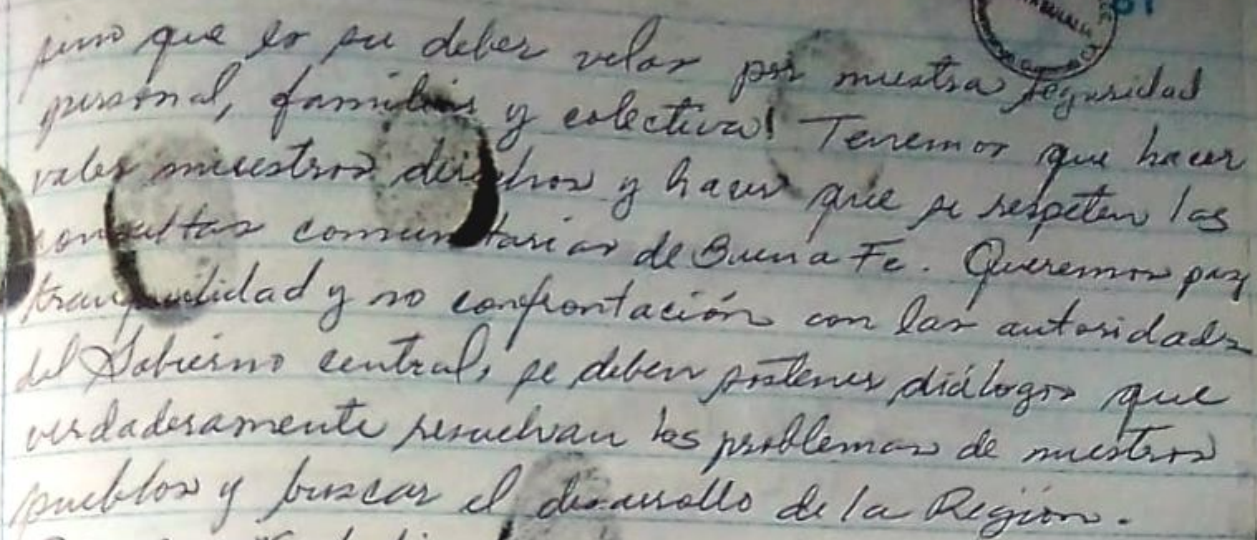 sino que es su deber velar por nuestra seguridad
personal, familiar y colectiva! Tenemos que hacer
valer nuestros derechos y hacer que se respeten las
consultas comunitarias de Buena Fe. Queremos paz
tranquilidad y no confrontación con las autoridades
del Gobierno central, se deben sostener diálogos que
verdaderamente resuelvan los problemas de nuestros
pueblos y buscar el desarrollo de la Región.